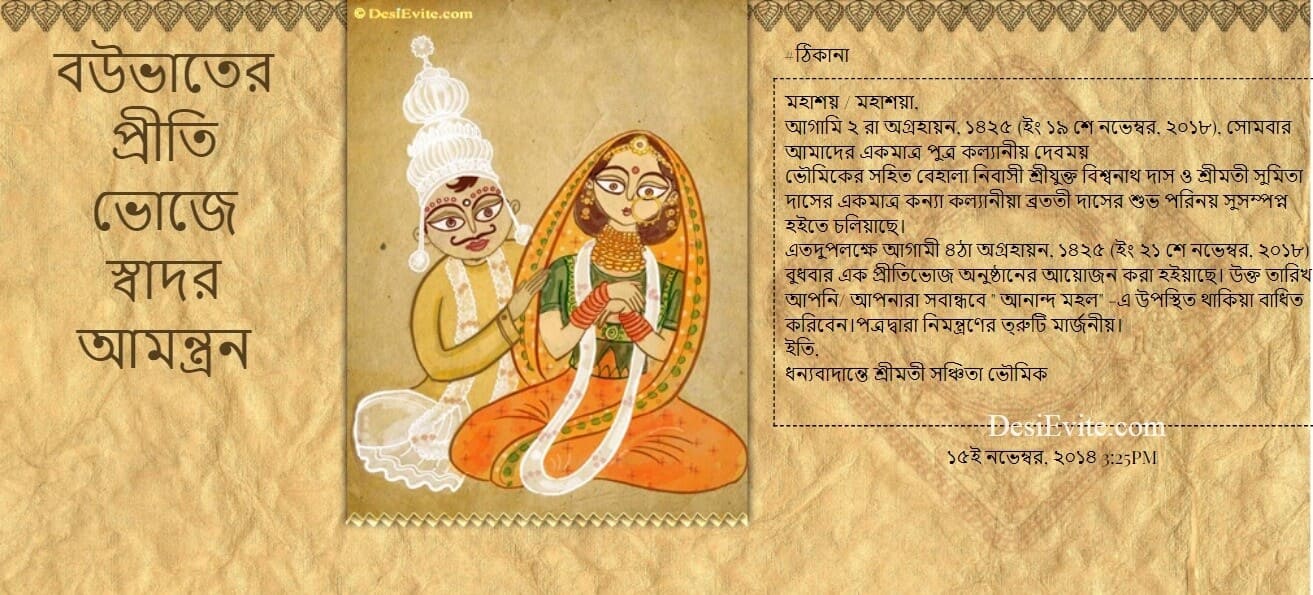 © DesiEvite.com
বউভাতের
প্রীতি
ভোজে
স্বাদর
আমন্ত্রন
#ঠিকানা
মহাশয় / মহাশয়া,
আগামি ২ রা অগ্রহায়ন, ১৪২৫ (ইং ১৯ শে নভেম্বর, ২০১৮), সোমবার
আমাদের একমাত্র পুত্র কল্যানীয় দেবময়
ভৌমিকের সহিত বেহালা নিবাসী শ্রীযুক্ত বিশ্বনাথ দাস ও শ্রীমতী সুমিতা
দাসের একমাত্র কন্যা কল্যানীয়া ব্রততী দাসের শুভ পরিনয় সুসম্পপ্ন
হইতে চলিয়াছে।
এতদুপলক্ষে আগামী ৪ঠা অগ্রহায়ন, ১৪২৫ (ইং ২১ শে নভেম্বর, ২০১৮)
বুধবার এক প্রীতিভোজ অনুষ্ঠানের আয়োজন করা হইয়াছে। উক্ত তারিখ
আপনি/ আপনারা সবান্ধবে " আনান্দ মহল" -এ উপস্থিত থাকিয়া বাধিত
করিবেন।পত্রদ্বারা নিমন্ত্রণের ত্রুটি মার্জনীয়।
ইতি,
ধন্যবাদান্তে শ্রীমতী সঞ্চিতা ভৌমিক
DesiEvite.com
১৫ই নভেম্বর, ২০১৪ 3:25PM